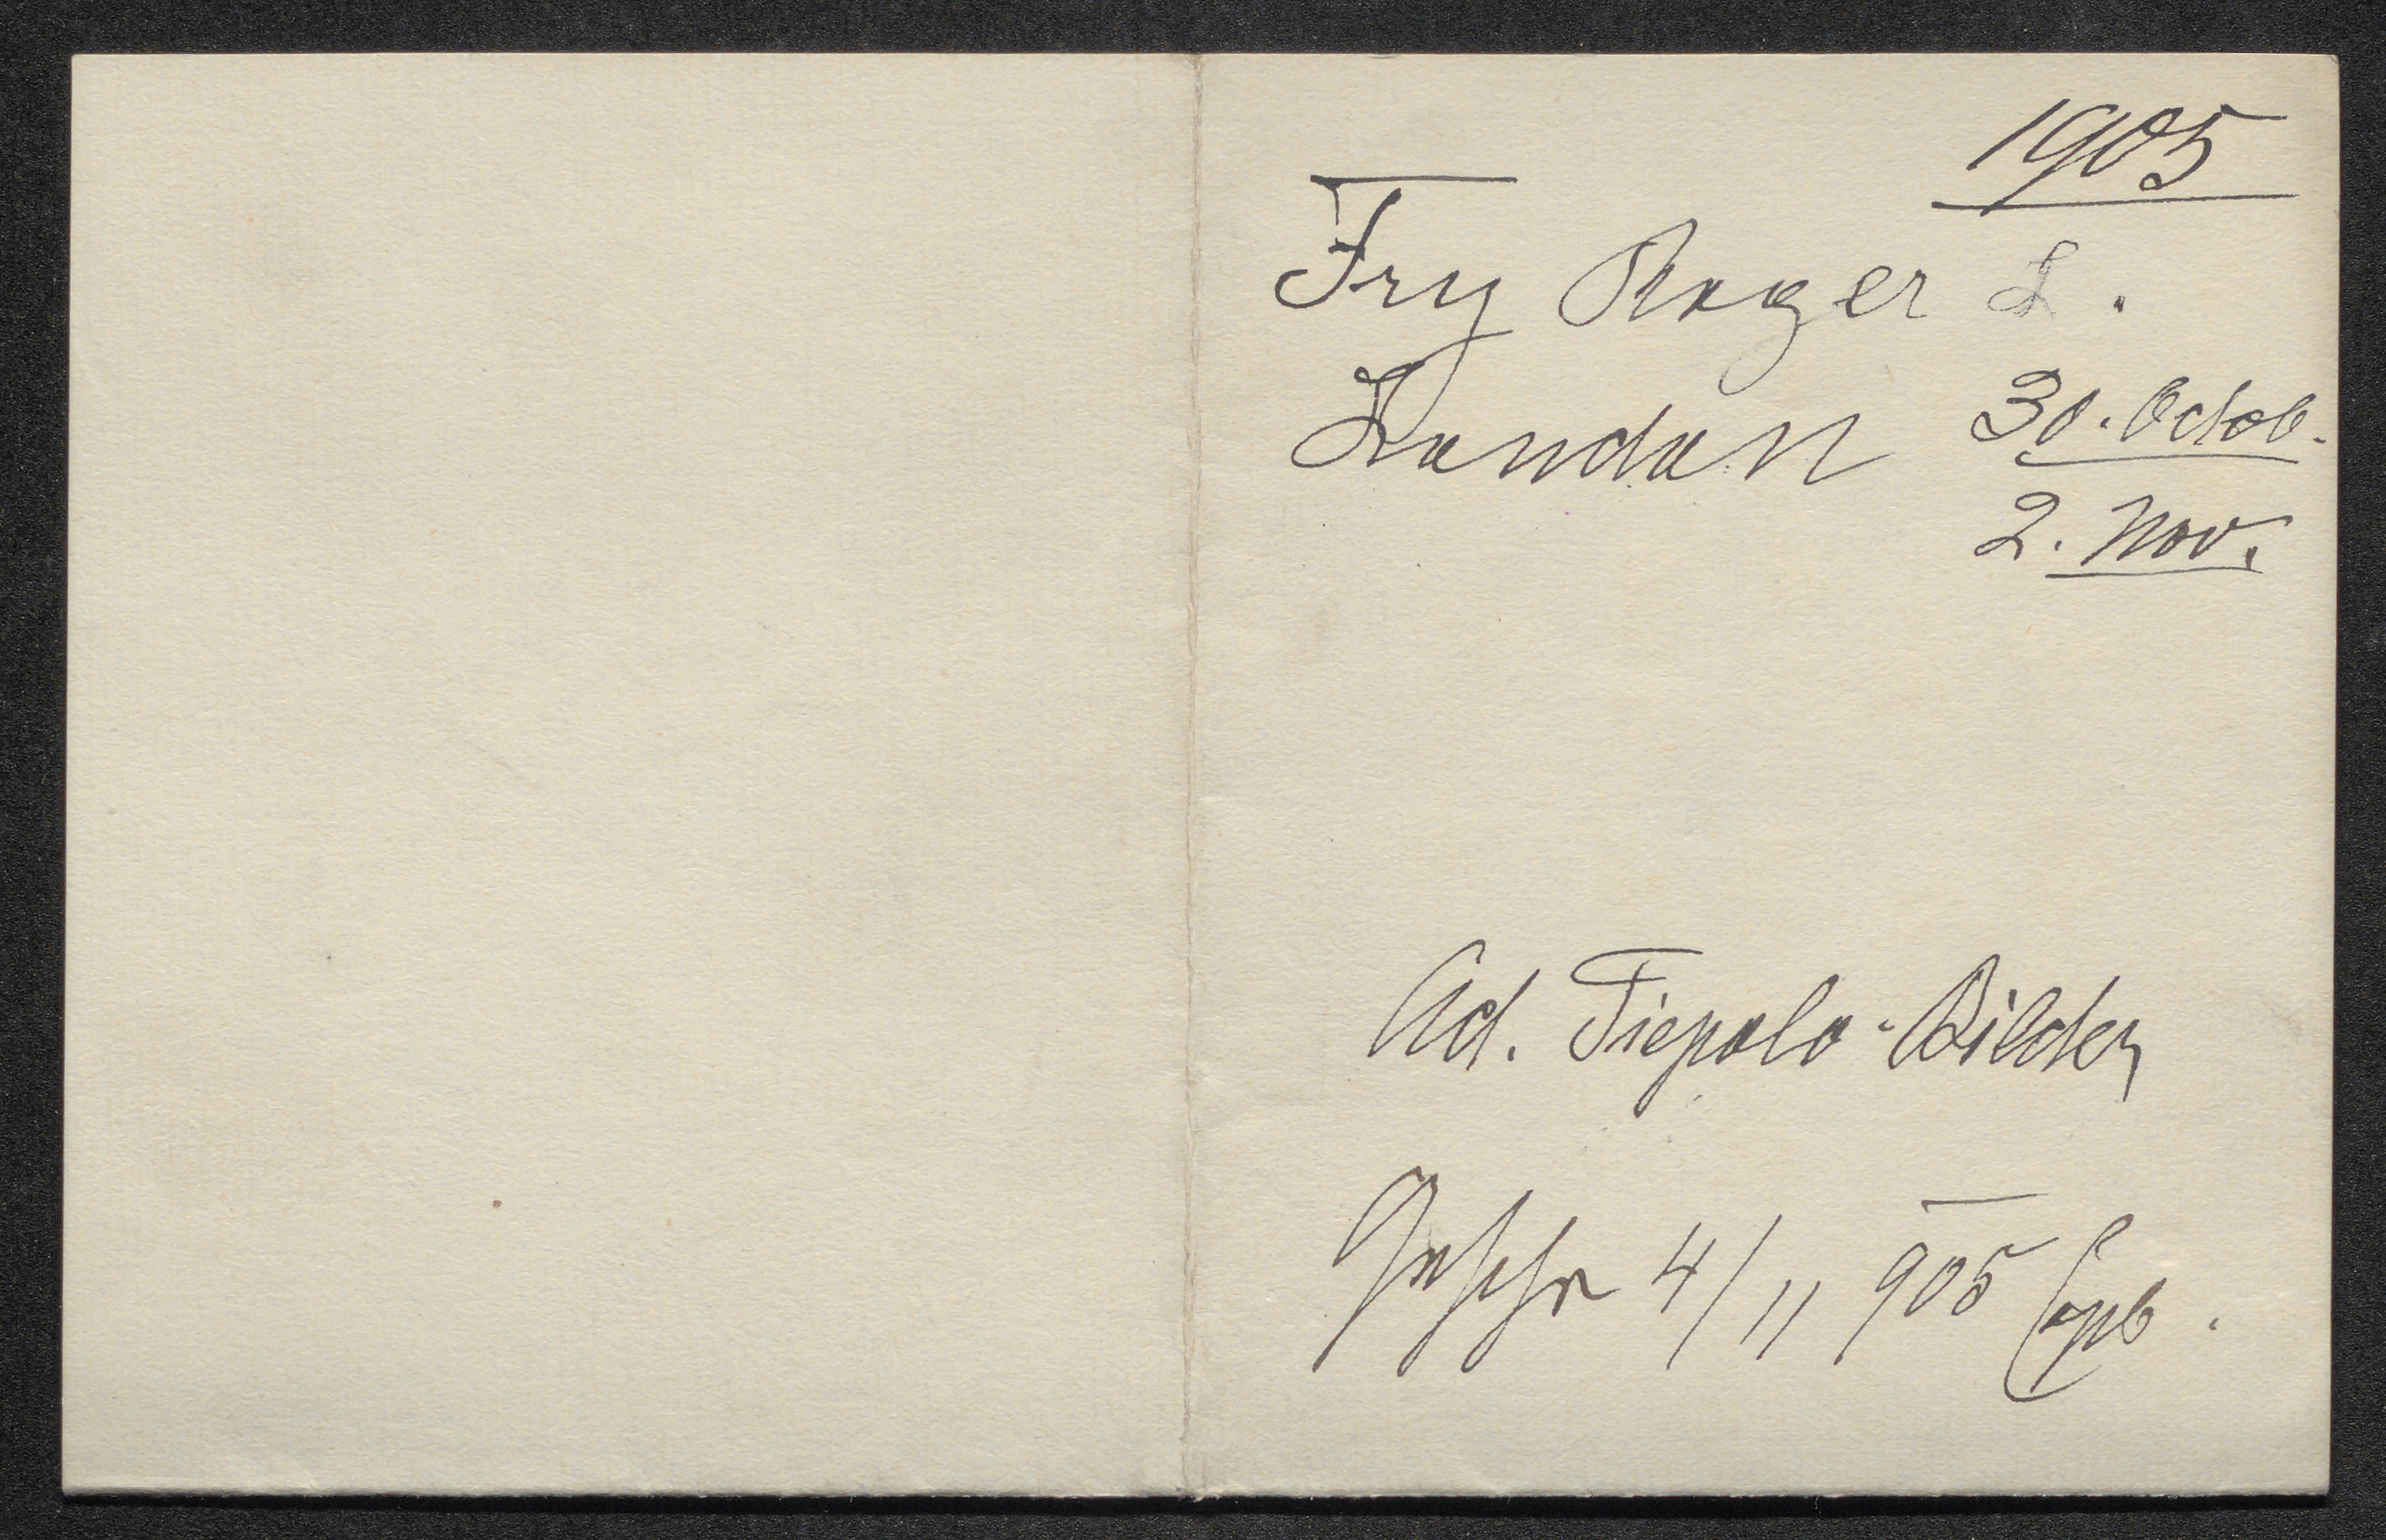 1905
Fry Roger L.
London 30. Octob.
2. Nov.
Ad. Tiepolo-Bilder
4/11 905